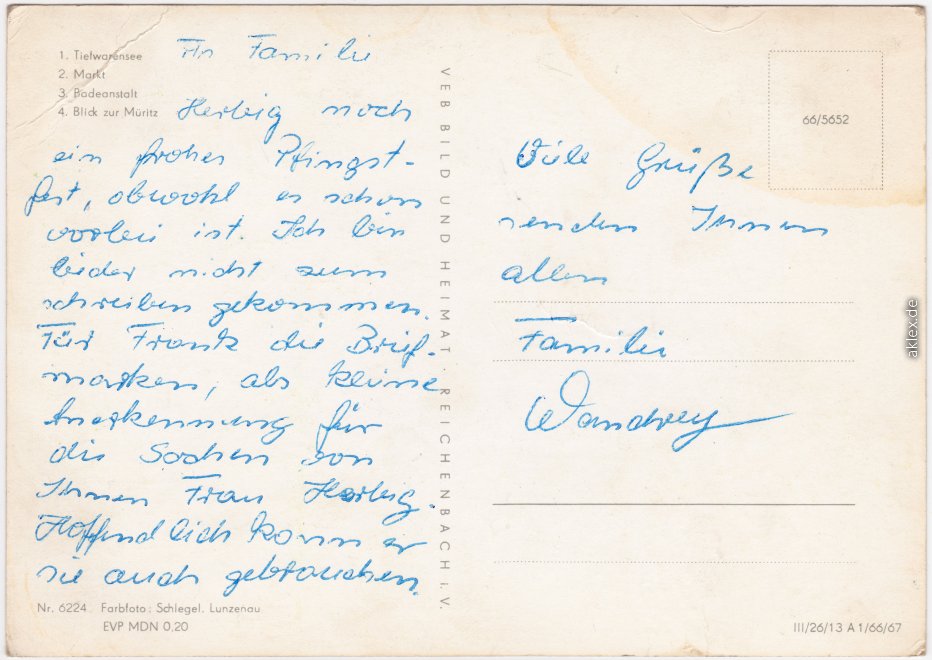 1. Tiefwarensee
2. Markt
3. Badeanstalt
4. Blick zur Müritz
An Familie
Herbig noch
ein frohes Pfingst-
fest, obwohl es schon
vorbei ist. Ich bin
leider nicht zum
schreiben gekommen.
Für Frank die Brief-
marken, als kleine
Anerkennung für
die Sachen von
Ihnen Frau Herbig.
Hoffendlich kann er
sie auch gebrauchen.
Nr. 6224 Farbfoto: Schlegel, Lunzenau
EVP MDN 0,20
VEB BILD UND HEIMAT · REICHENBACH i. V.
66/5652
Viele Grüße
senden Ihnen
allen
Familie
Wandrey
III/26/13 A 1/66/67
aklex.de